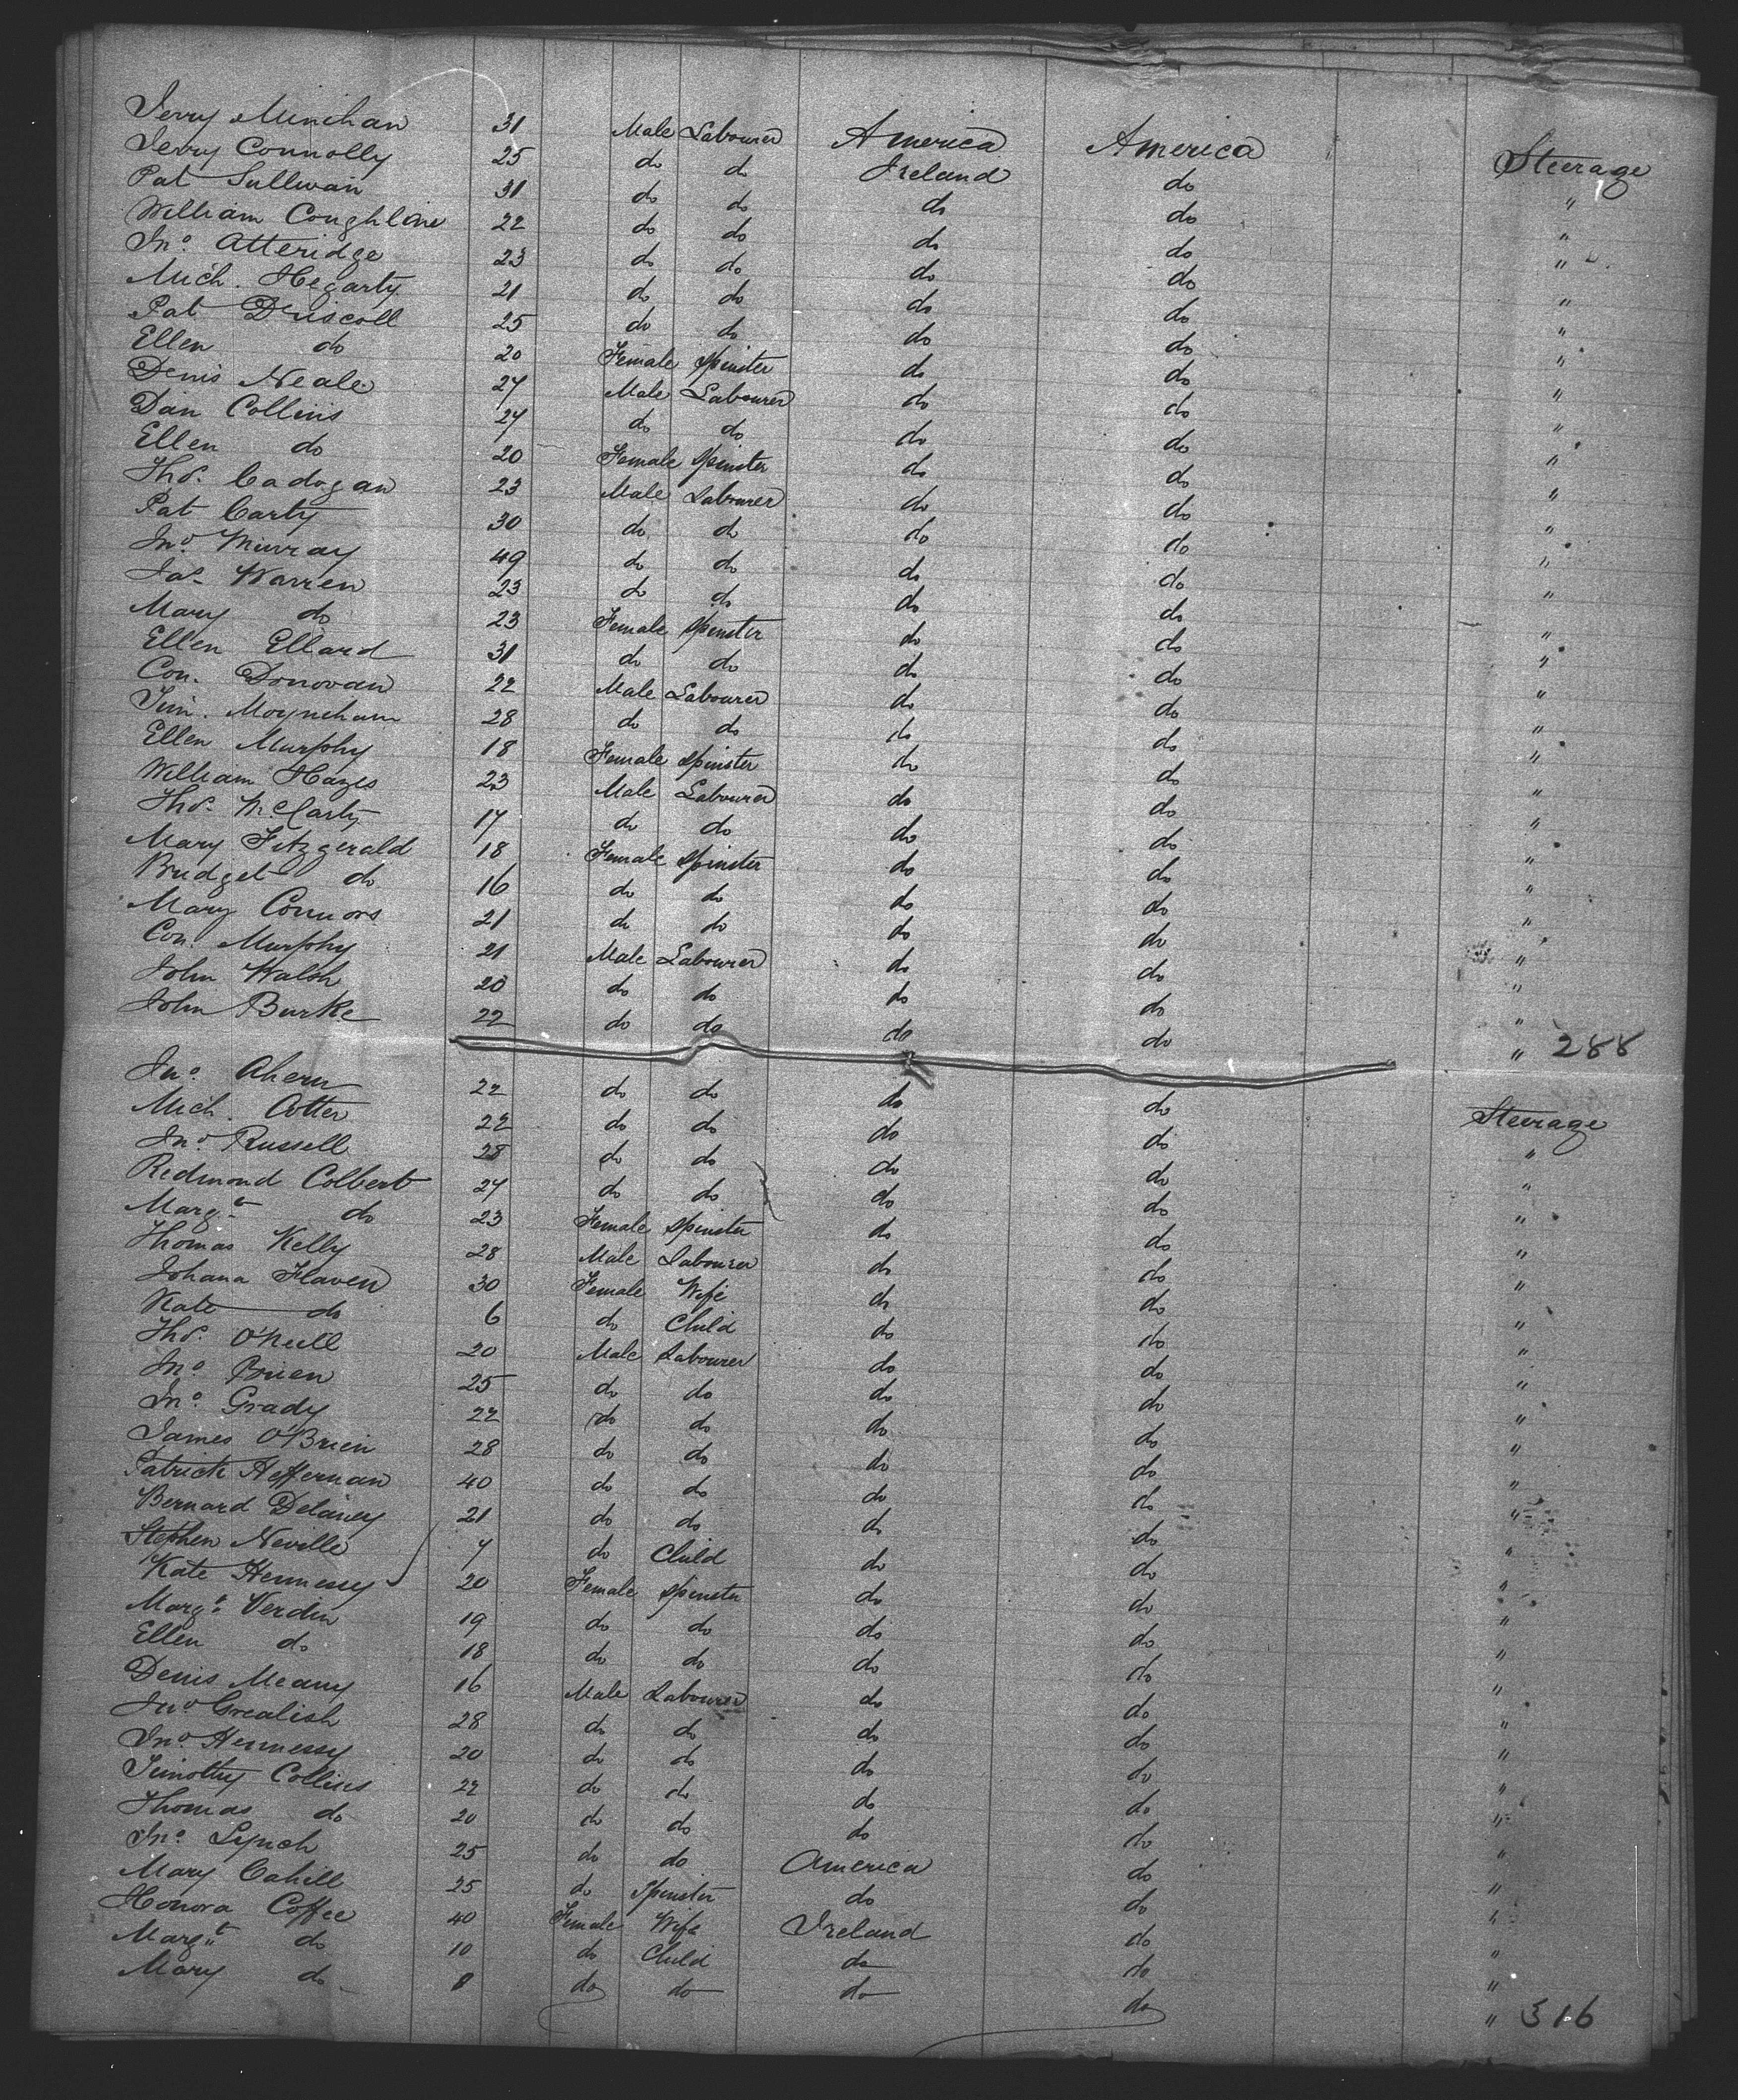 Jerry Minihan 31 Male Labourer America America Steerage
Jerry Connolly 25 do do Ireland do "
Pat Sullivan 31 do do do do "
William Coughlane 22 do do do do "
Jno. Atteridge 23 do do do do "
Mich. Hegarty 21 do do do do "
Pat Driscoll 25 do do do do "
Ellen do 20 Female Spinster do do "
Denis Neale 27 Male Labourer do do "
Dan Collins 27 do do do do "
Ellen do 20 Female Spinster do do "
Thos. Cadogan 23 Male Labourer do do "
Pat Carty 30 do do do do "
Jno. Murray 49 do do do do "
Jas. Warren 23 do do do do "
Mary do 23 Female Spinster do do "
Ellen Ellard 31 do do do do "
Con. Donovan 22 Male Labourer do do "
Tim. Moyneham 28 do do do do "
Ellen Murphy 18 Female Spinster do do "
William Hayes 23 Male Labourer do do "
Thos. McCarty 17 do do do do "
Mary Fitzgerald 18 Female Spinster do do "
Bridget do 16 do do do do "
Mary Connors 21 do do do do "
Con. Murphy 21 Male Labourer do do "
John Walsh 20 do do do do "
John Burke 22 do do do do " 288
Jno. Ahern 22 do do do do Steerage
Mich. Cotter 22 do do do do "
Jno. Russell 28 do do do do "
Redmond Colbert 27 do do do do "
Margt. do 23 Female Spinster do do "
Thomas Kelly 28 Male Labourer do do "
Johana Flaven 30 Female Wife do do "
Kate do 6 do Child do do "
Thos. O'Neill 20 Male Labourer do do "
Jno. Brien 25 do do do do "
Jno. Grady 22 do do do do "
James O'Brien 28 do do do do "
Patrick Heffernan 40 do do do do "
Bernard Delaney 21 do do do do "
Stephen Neville 7 do Child do do "
Kate Hennessy 20 Female Spinster do do "
Margt. Verdin 19 do do do do "
Ellen do 18 do do do do "
Denis Meany 16 Male Labourer do do "
Jno. Grealish 28 do do do do "
Jno. Hennessy 20 do do do do "
Timothy Collins 22 do do do do "
Thomas do 20 do do do do "
Jno. Lynch 25 do do America do "
Mary Cahill 25 do Spinster do do "
Honora Coffee 40 Female Wife Ireland do "
Margt. do 10 do Child do do "
Mary do 8 do do do do " 316